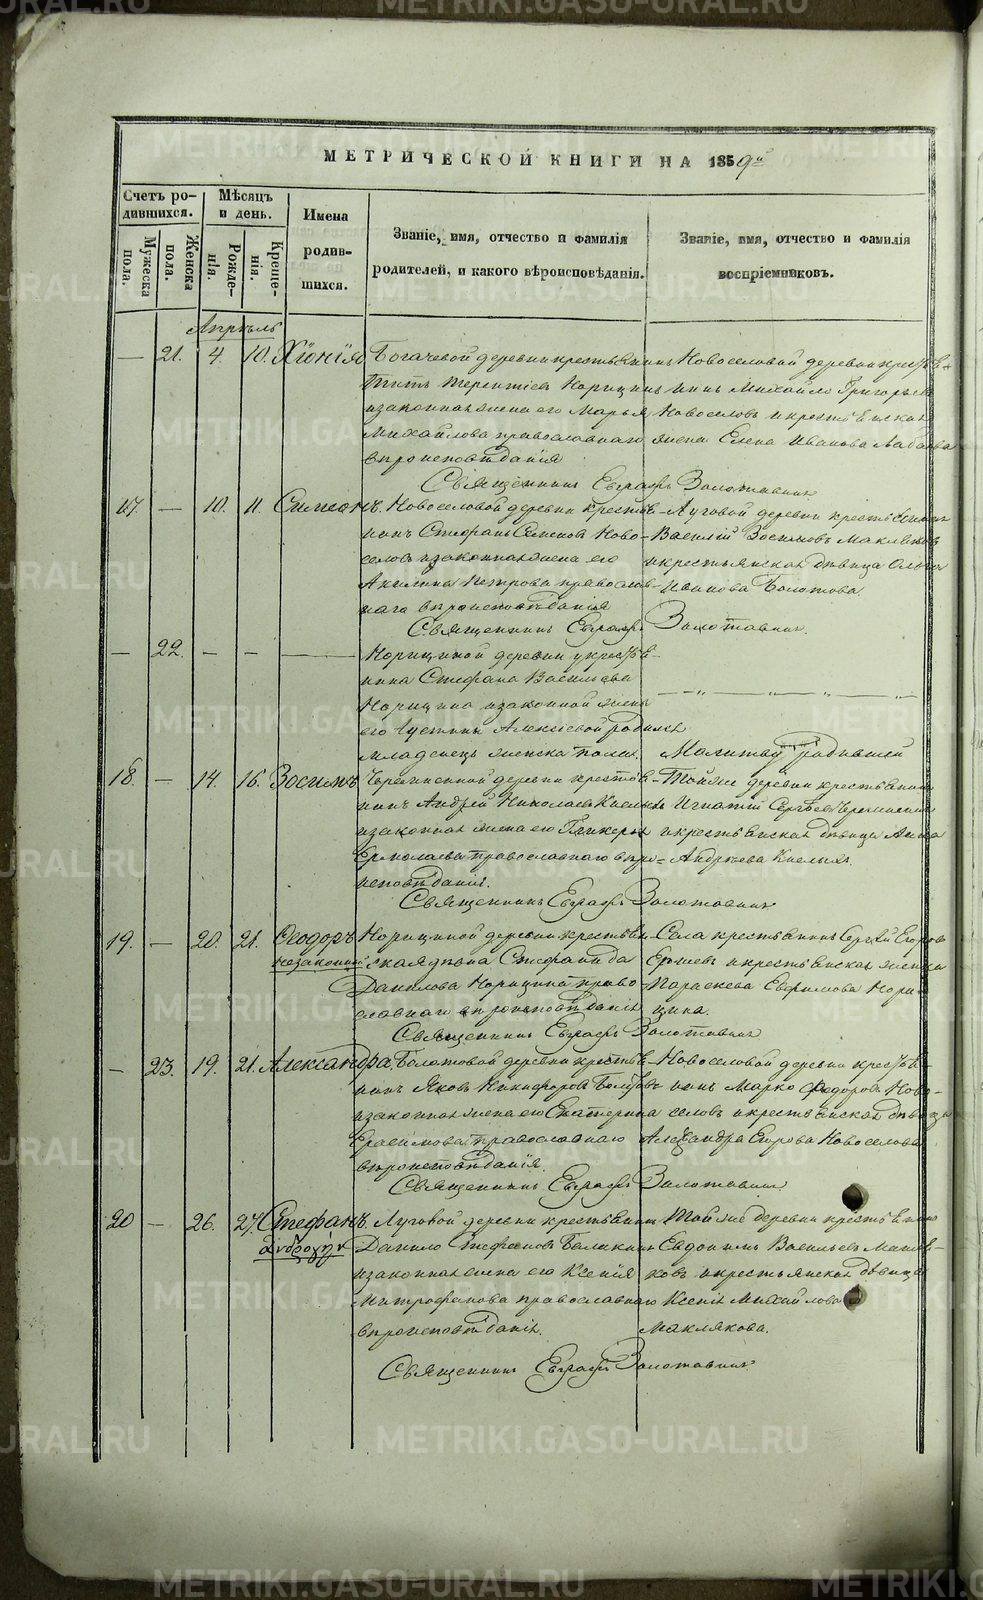 МЕТРИЧЕСКОЙ КНИГИ НА 1859 го
Счетъ ро-
дившихся.
Мѣсяцъ
и день.
Имена
родив-
шихся.
Званіе, имя, отчество и фамилія
родителей, и какого вѣроисповѣданія.
Званіе, имя, отчество и фамилія
воспріемниковъ.
Мужеска
пола.
Женска
пола.
Рожде-
нія.
Креще-
нія.
Апрѣль
— 21. 4. 10. Хіонія
Богачевой деревни крестьянинъ
Титъ Терентіевъ Корицинъ
и законная жена его Марья
Михайлова православнаго
вѣроисповѣданія
Новоселовой деревни кресть-
нинъ Михайло Григорьевъ
Новоселовъ и крестьянская
жена Елена Иванова
Священникъ Евграфъ Золотавинъ
17. — 10. 11. Симеонъ.
Новоселовой деревни крестья-
нинъ Стефанъ Семеновъ Ново-
селовъ и законная жена его
Акилина Петрова православ-
наго вѣроисповѣданія
Луговой деревни крестьянинъ
Василій Зосимовъ Макляковъ
и крестьянская дѣвица Ольга
Иванова Болотова
Священникъ Евграфъ Золотавинъ.
— 22. — — —
Корициной деревни у крестья-
нина Стефана Васильева
Корицина и законной жены
его Іустины Алексіевой родился
младенецъ женска пола.
— „ — „ — „ —
Молитву родившей
18. — 14. 16. Зосимъ
деревни крестья-
нинъ Андрей Николаевъ Киселевъ
и законная жена его Гликерія
Ермолаева православнаго вѣро-
исповѣданія.
Тойже деревни крестьянинъ
Игнатій Сергѣевъ
и крестьянская дѣвица Анна
Андреева
Священникъ Евграфъ Золотавинъ
19. — 20. 21. Ѳеодоръ
незаконный
Корициной деревни крестьян-
ская дѣвка Стефанида
Данилова Корицина право-
славнаго вѣроисповѣданія
Села крестьянинъ Сергѣй Егоровъ
Ершевъ и крестьянская женка
Параскева Евфимова Кори-
цина.
Священникъ Евграфъ Золотавинъ
— 23. 19. 21. Александра
Болотовой деревни крестья-
нинъ Яковъ Никифоровъ Болотовъ
и законная жена его Екатерина
Герасимова православнаго
вѣроисповѣданія.
Новоселовой деревни крестья-
нинъ Марко Ѳедоровъ Ново-
селовъ и крестьянская дѣвица
Александра Егорова Новоселова
Священникъ Евграфъ Золотавинъ
20 — 26. 27. Стефанъ.
Луговой деревни крестьянинъ
Данило Стефановъ Баликинъ
и законная жена его Ксенія
Митрофанова православнаго
вѣроисповѣданія.
Той же деревни крестьянинъ
Евдокимъ Васильевъ Макля-
ковъ и крестьянская дѣвица
Ксенія Михайлова
Маклякова.
Священникъ Евграфъ Золотавинъ
METRIKI.GASO-URAL.RU